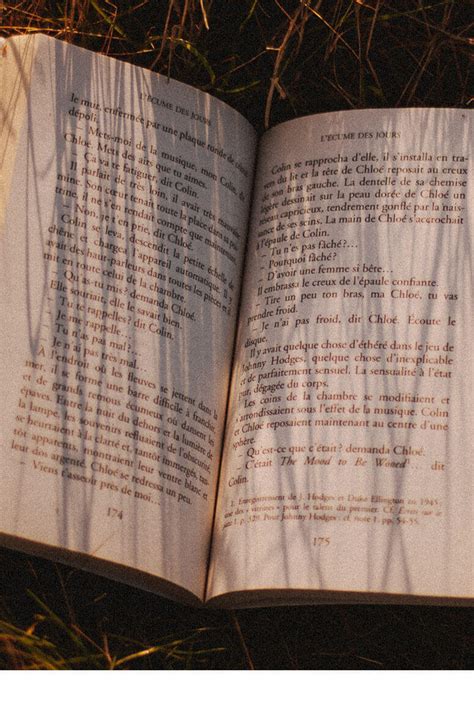 L'ÉCUME DES JOURS
le mur, enfermée par une plaque ronde de cristal
dépoli.
– Mets-moi de la musique, mon Colin, dit
Chloé. Mets des airs que tu aimes.
– Ça va te fatiguer, dit Colin.
Il parlait de très loin, il avait très mauvaise
mine. Son cœur tenait toute la place dans sa poi-
trine, il ne s'en rendait compte que maintenant.
– Non, je t'en prie, dit Chloé.
Colin se leva, descendit la petite échelle de
chêne et chargea l'appareil automatique. Il y
avait des haut-parleurs dans toutes les pièces et il
mit en route celui de la chambre.
– Qu'as-tu mis? demanda Chloé.
Elle souriait, elle le savait bien.
– Tu te rappelles? dit Colin.
– Je me rappelle...
– Tu n'as pas mal?...
– Je n'ai pas très mal...
À l'endroit où les fleuves se jettent dans la
mer, il se forme une barre difficile à franchir
et de grands remous écumeux où dansent les
épaves. Entre la nuit du dehors et la lumière de
la lampe, les souvenirs refluaient de l'obscurité,
se heurtaient à la clarté et, tantôt immergés, tan-
tôt apparents, montraient leur ventre blanc et
leur dos argenté. Chloé se redressa un peu.
– Viens t'asseoir près de moi...
174
L'ÉCUME DES JOURS
Colin se rapprocha d'elle, il s'installa en tra-
vers du lit et la tête de Chloé reposait au creux
de son bras gauche. La dentelle de sa chemise
légère dessinait sur la peau dorée de Chloé un
réseau capricieux, tendrement gonflé par la nais-
sance de ses seins. La main de Chloé s'accrochait
à l'épaule de Colin.
– Tu n'es pas fâché?...
– Pourquoi fâché?
– D'avoir une femme si bête...
Il embrassa le creux de l'épaule confiante.
– Tire un peu ton bras, ma Chloé, tu vas
prendre froid.
– Je n'ai pas froid, dit Chloé. Écoute le
disque.
Il y avait quelque chose d'éthéré dans le jeu de
Johnny Hodges, quelque chose d'inexplicable
et de parfaitement sensuel. La sensualité à l'état
pur, dégagée du corps.
Les coins de la chambre se modifiaient et
s'arrondissaient sous l'effet de la musique. Colin
et Chloé reposaient maintenant au centre d'une
sphère.
– Qu'est-ce que c'était? demanda Chloé.
– C'était The Mood to Be Wooed¹... dit
Colin.
1. Enregistrement de J. Hodges et Duke Ellington en 1945;
une des « victoires » pour le talent du premier. Cf.
p. 529. Pour Johnny Hodges: cf. note 1, pp. 54-55.
175